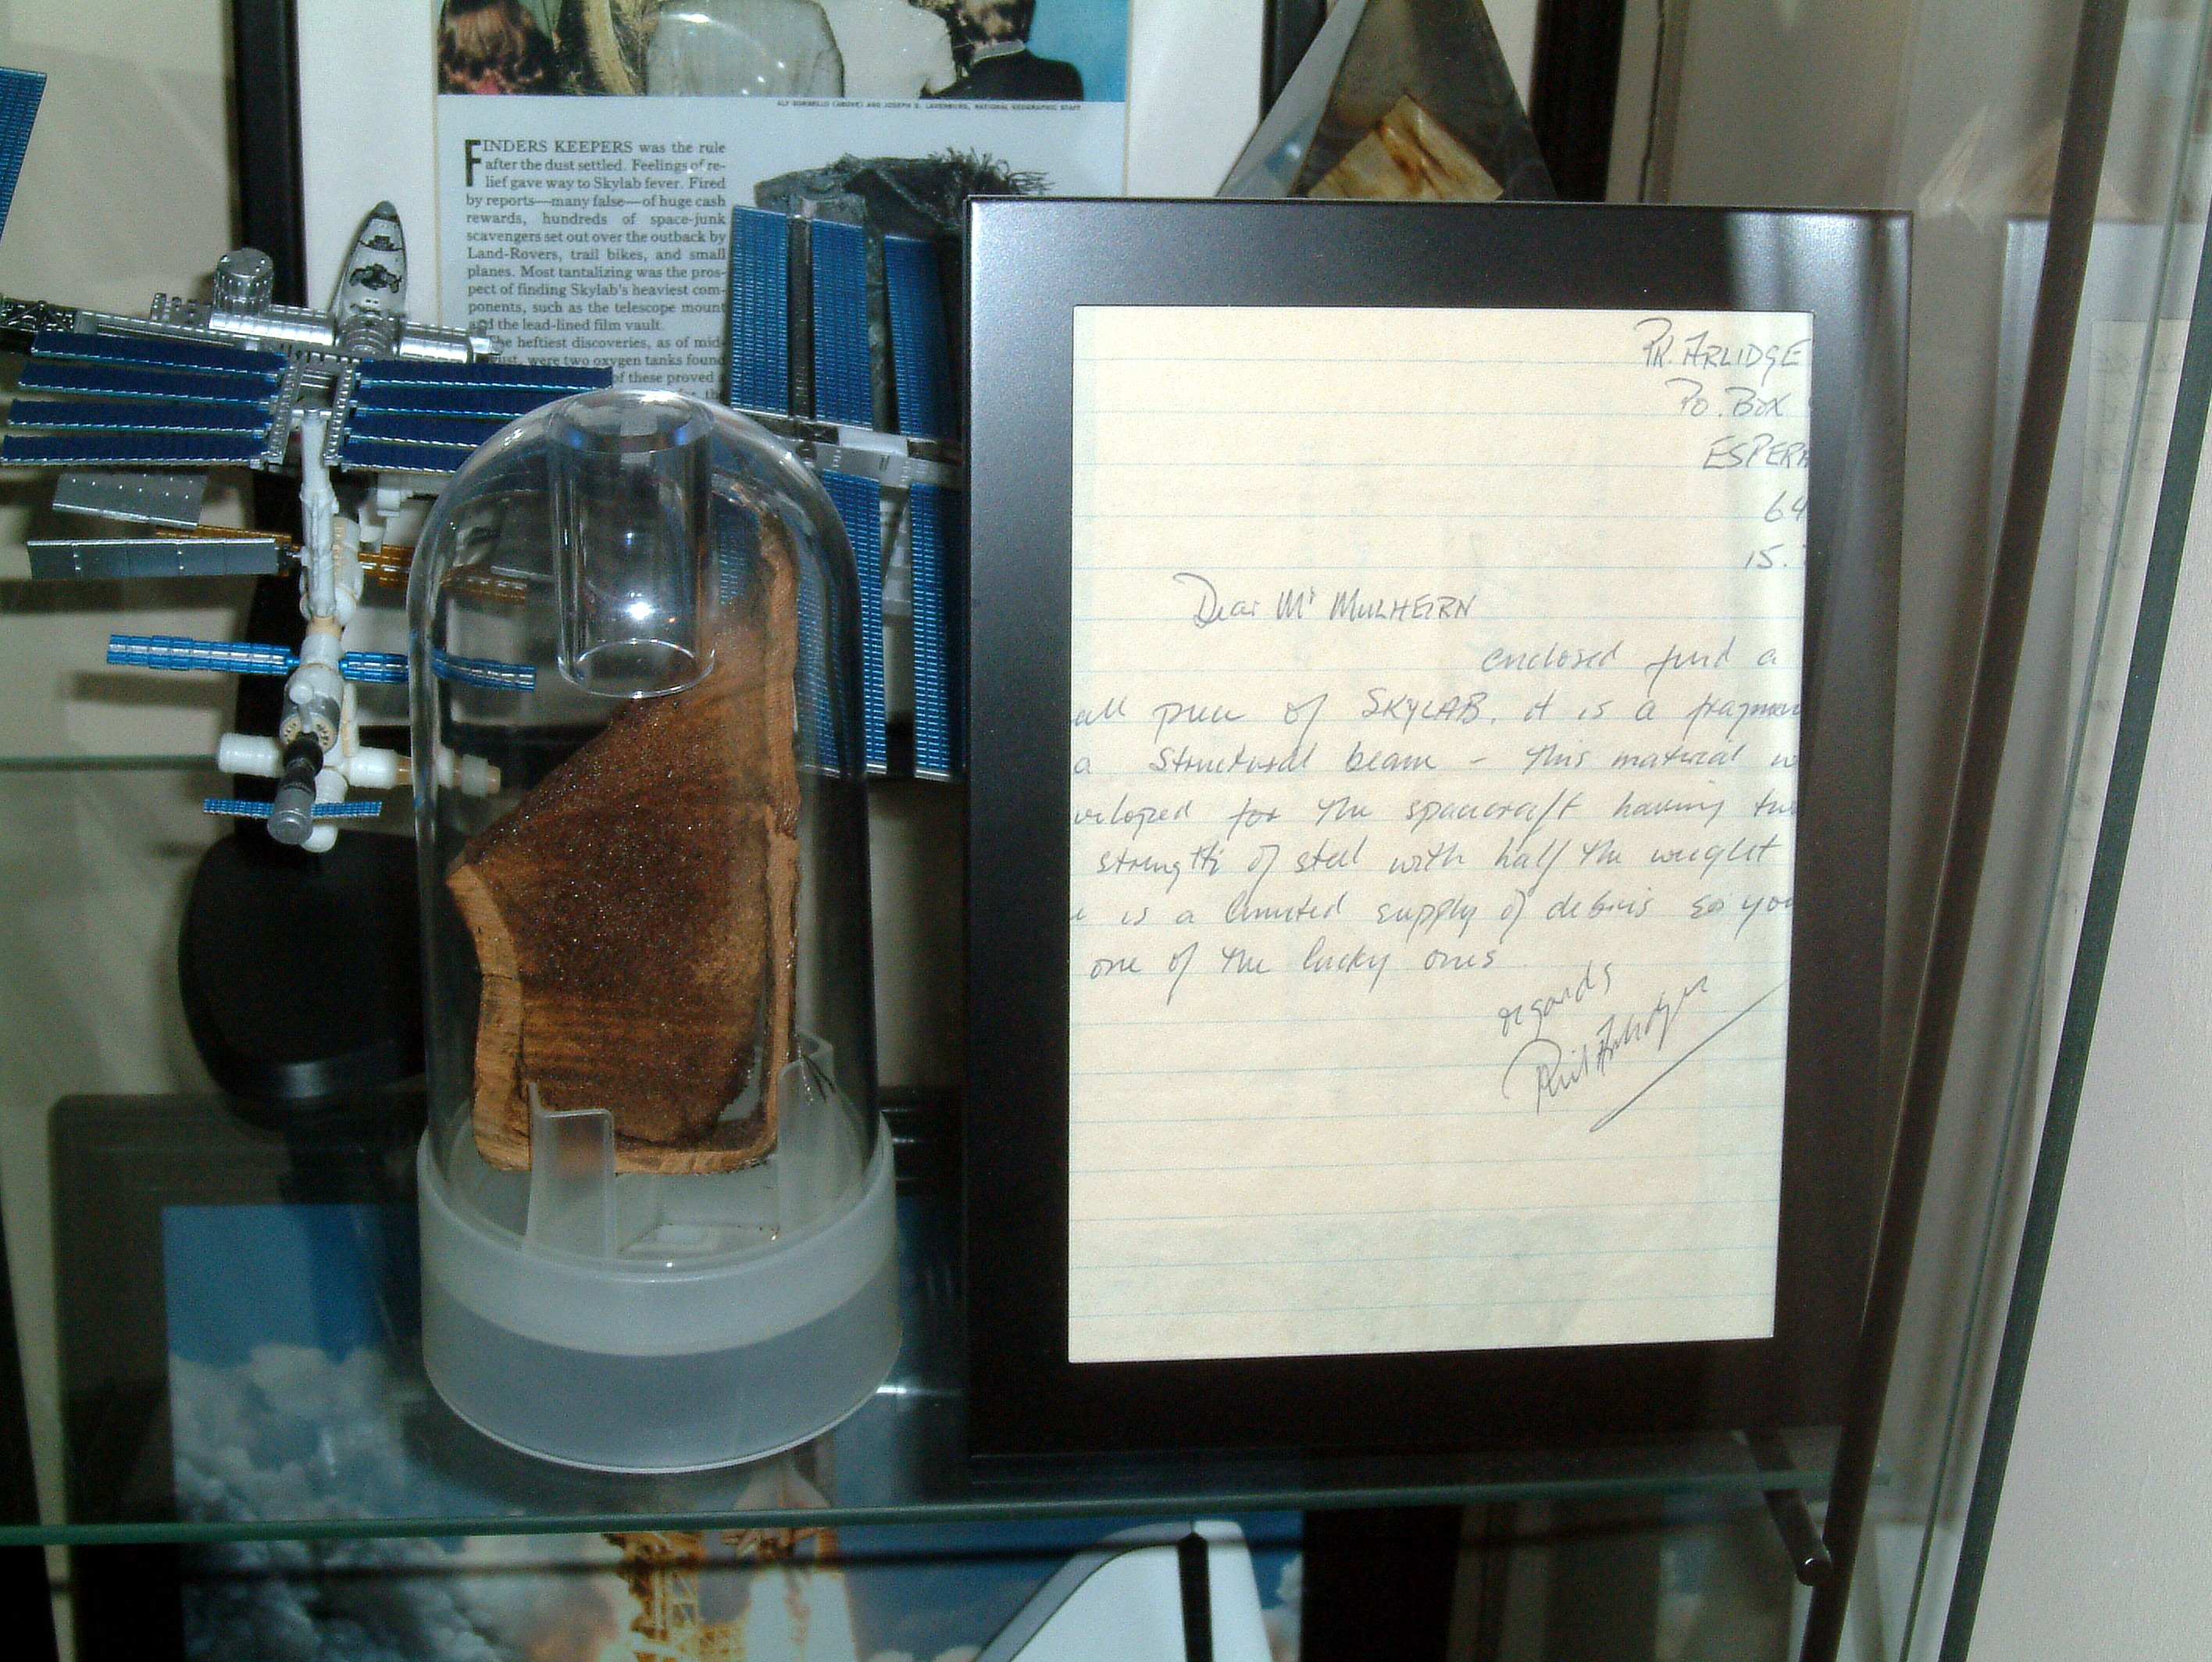 ALF SORBELLO (ABOVE) AND JOSEPH D. LAVENBURG, NATIONAL GEOGRAPHIC STAFF
FINDERS KEEPERS was the rule
after the dust settled. Feelings of re-
lief gave way to Skylab fever. Fired
by reports—many false—of huge cash
rewards, hundreds of space-junk
scavengers set out over the outback by
Land-Rovers, trail bikes, and small
planes. Most tantalizing was the pros-
pect of finding Skylab's heaviest com-
ponents, such as the telescope mount
and the lead-lined film vault.
The heftiest discoveries, as of mid-
ust, were two oxygen tanks found
of these proved
the
PH. ARLIDGE
PO. BOX
ESPERA
64
15.
Dear Mr MULHEIRN
enclosed find a
all piece of SKYLAB. it is a fragmen
a structural beam - this material w
veloped for the spacecraft having tw
strength of steel with half the weight
e is a limited supply of debris so you
one of the lucky ones
regards
Phil Arlidge